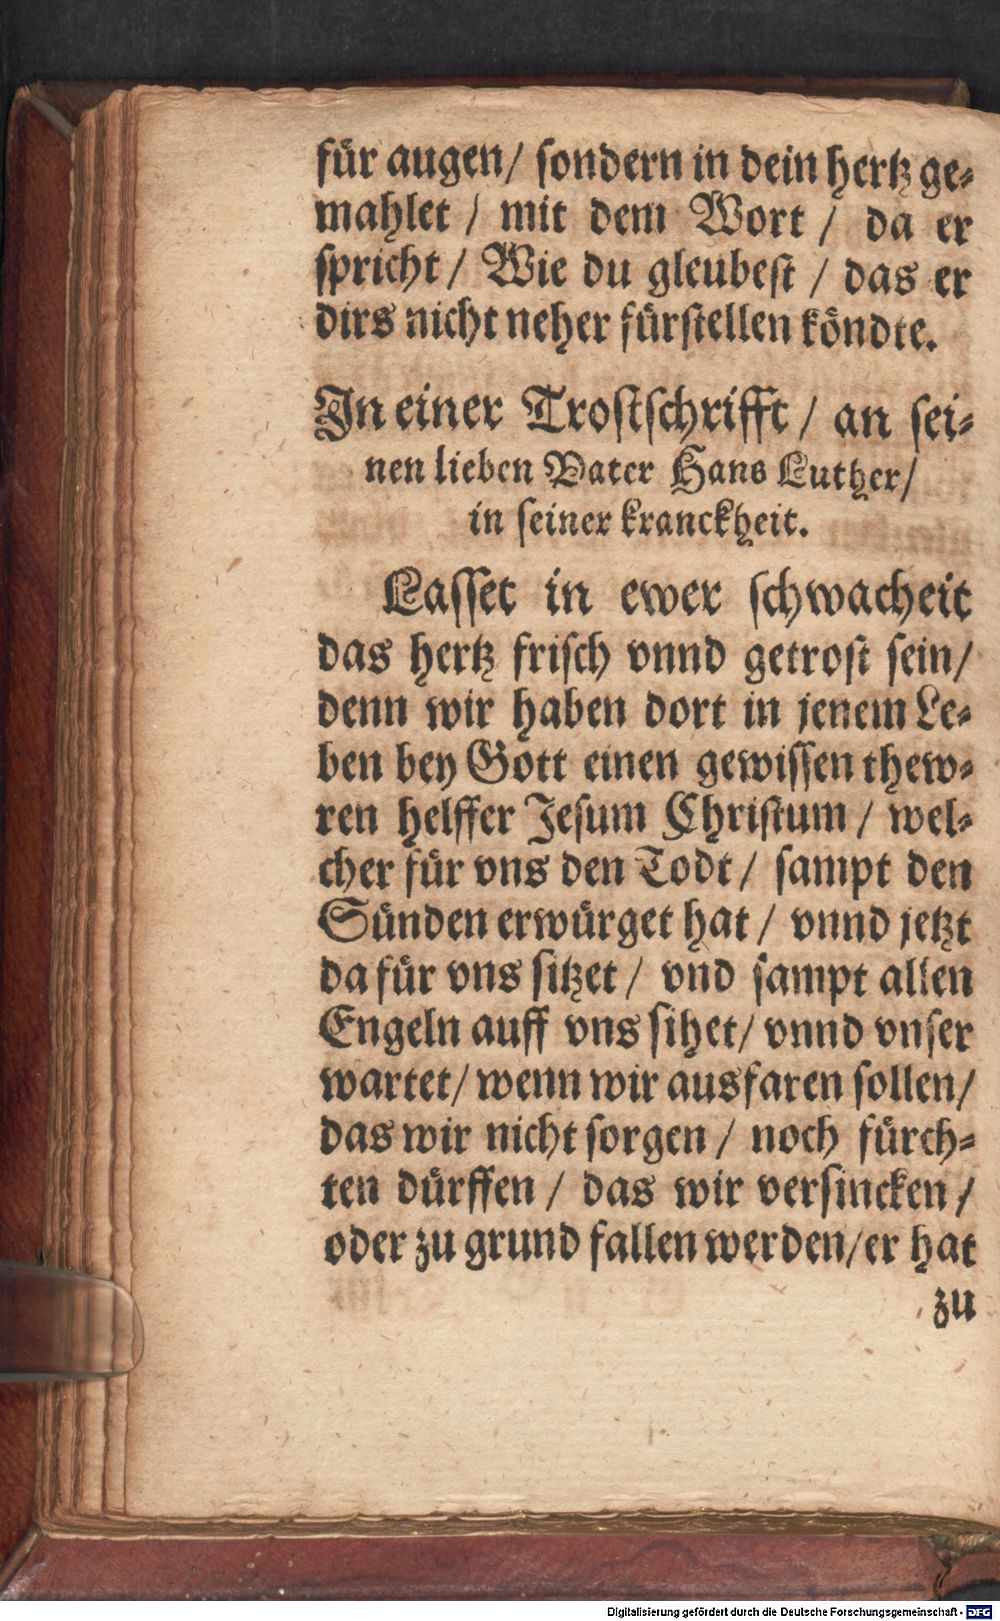 für augen/ sondern in dein hertz ge⸗
mahlet / mit dem Wort / da er
spricht / Wie du gleubest / das er
dirs nicht neher fürstellen köndte.
In einer Trostschrifft / an sei⸗
nen lieben Vater Hans Luther/
in seiner kranckheit.
Lasset in ewer schwacheit
das hertz frisch vnnd getrost sein/
denn wir haben dort in jenem Le⸗
ben bey Gott einen gewissen thew⸗
ren helffer Jesum Christum / wel⸗
cher für vns den Todt / sampt den
Sünden erwürget hat / vnnd jetzt
da für vns sitzet / vnd sampt allen
Engeln auff vns sihet/ vnnd vnser
wartet/ wenn wir ausfaren sollen/
das wir nicht sorgen / noch fürch⸗
ten dürffen / das wir versincken /
oder zu grund fallen werden/er hat
zu
Digitalisierung gefördert durch die Deutsche Forschungsgemeinschaft - DFG